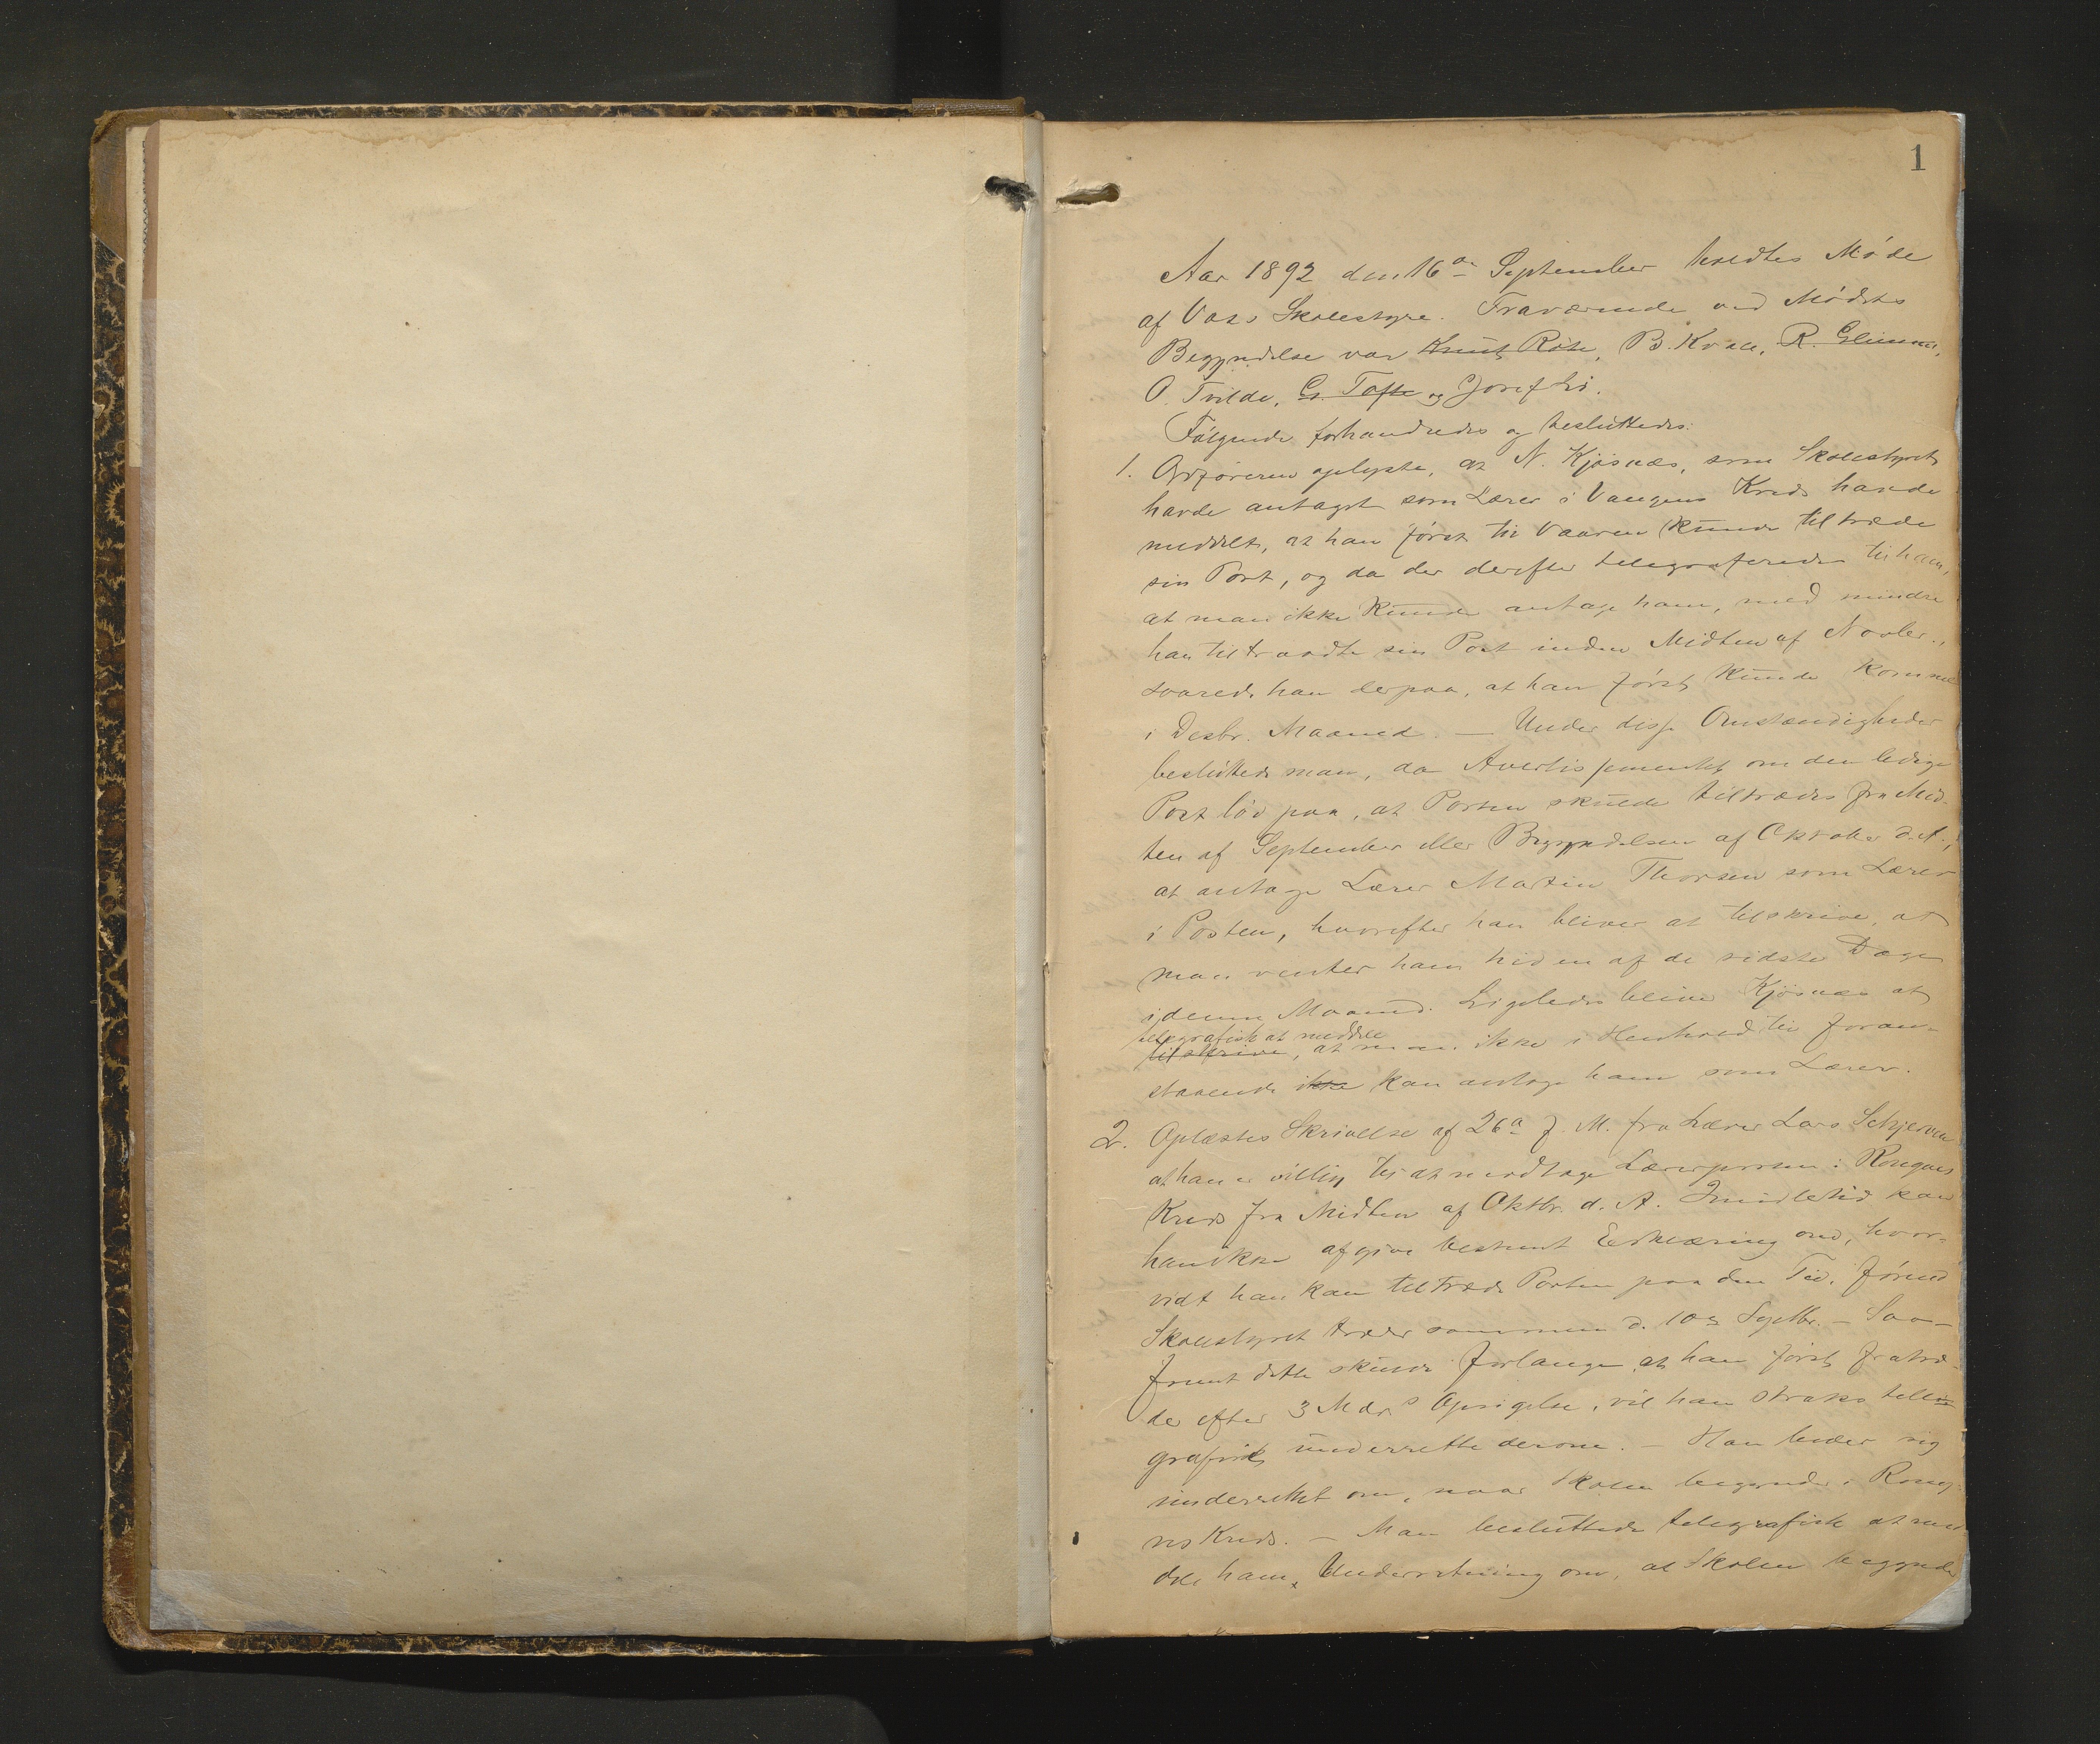 1
Aar 1892 den 16de September holdtes Møde
af Voss Skolestyre. Fraværende ved Mødets
Begyndelse var Knut Røte, B. Kvále, R. Glimme,
O. Tvilde, G. Tofte og Josef Li.
Følgende forhandledes og besluttedes:
1. Ordføreren oplyste, at N. Kjösnæs, som Skolestyret
havde antaget som Lærer i Vangens Kreds havde
meddelt, at han først til Vaaren kunde tiltræde
sin Post, og da der derefter telegraferedes til ham,
at man ikke kunde antage ham, med mindre
han tiltraadte sin Post inden Midten af Novbr.,
svarede han derpaa, at han først kunde komme
i Desbr. Maaned. — Under disse Omstændigheder
besluttede man, da Avertissementet om den ledige
Post lød paa, at Posten skulde tiltrædes fra Mid-
ten af September eller Begyndelsen af Oktober d. A.,
at antage Lærer Martin Thorsen som Lærer
i Posten, hvorefter han bliver at tilskrive, at
man venter ham hid en af de sidste Dage
i denne Maaned. Ligeledes bliver Kjösnæs at
telegrafisk at meddele
tilskrive, at man ikke i Henhold til foran-
staaende ikke kan antage ham som Lærer.
2. Oplæstes Skrivelse af 26de f. M. fra Lærer Lars Schjerven
at han er villig til at modtage Lærerposten i Rongnes
Kreds fra Midten af Oktbr. d. A. Imidlertid kan
han ikke afgive bestemt Erklæring om, hvor-
vidt han kan tiltræde Posten paa den Tid, førend
Skolestyret træder sammen d. 10de Septbr. — Saa-
fremt dette skulde forlange, at han først fratræ-
der efter 3 Mdrs Opsigelse, vil han straks tele-
grafisk underrette derom. — Han beder sig
underrettet om, naar Skolen begynder i Rong-
nes Kreds. — Man besluttede telegrafisk at med-
dele ham Underretning om, at Skolen begynder